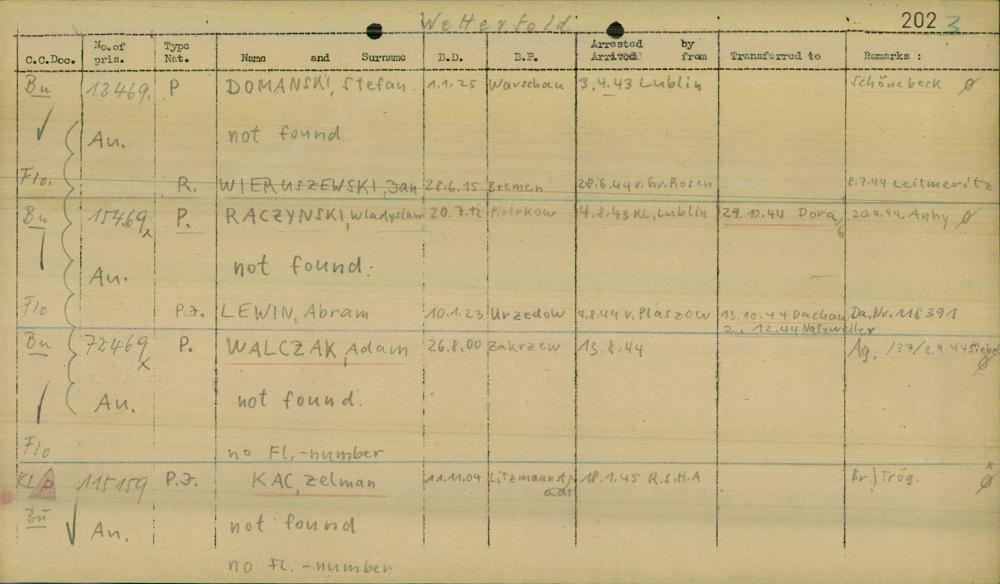 Wetterfeld 202 3
C.C.Doc. No.of pris. Type Nat. Name and Surname B.D. B.P. Arrested Arrived by from Transferred to Remarks :
Bu 12469. P DOMANSKI, Stefan 1.1.25 Warschau 3.4.43 Lublin Schönebeck Ø
An. not found
Flo. R. WIERUSZEWSKI, Jan 28.6.15 Bremen 28.6.44 v. Gr. Rosen 8.7.44 Leitmeritz
Bu 15469 x P. RACZYNSKI, Wladyslaw 20.7.12 Piotrkow 4.8.43 KL, Lublin 29.10.44 Dora 20.4.44. Ø
An. not found.
Flo P.J. LEWIN, Abram 10.1.23 Urzedow 4.8.44 v. Plaszow 13.10.44 Dachau Da. Nr. 118391
12.44 Natzweiler
Bu 72469 x P. WALCZAK, Adam 26.8.00 Zakrzew 13.8.44 Ag. /37/2.9.44 Ø
An. not found.
Flo no Fl.-number
KL P 115159 P.J. KAC, Zelman 11.11.04 Litzmannstadt 18.1.45 R.S.H.A Trög. x Ø
Bu An. not found
no Fl.-number